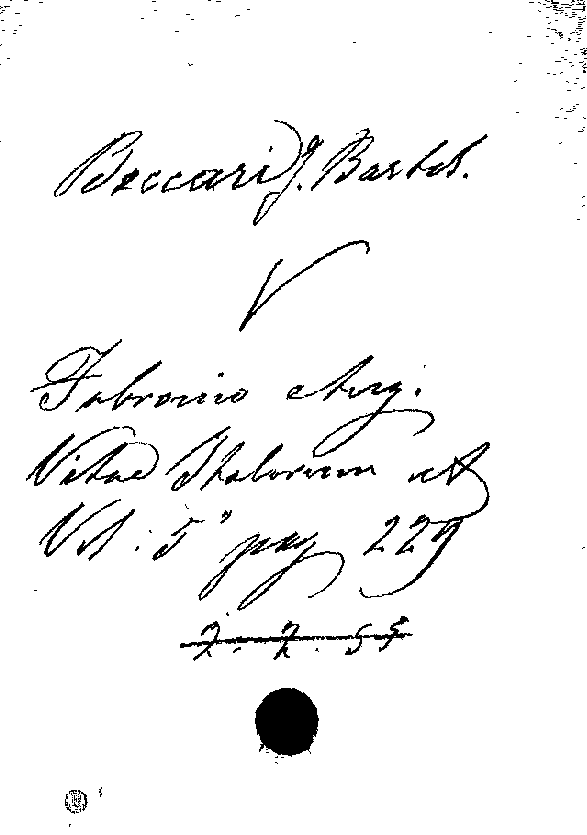 Beccari J. Bartol.
V
Fabronio Ang.
Vitae Italorum et
Vol: 5° pag 229
2. 2. 55